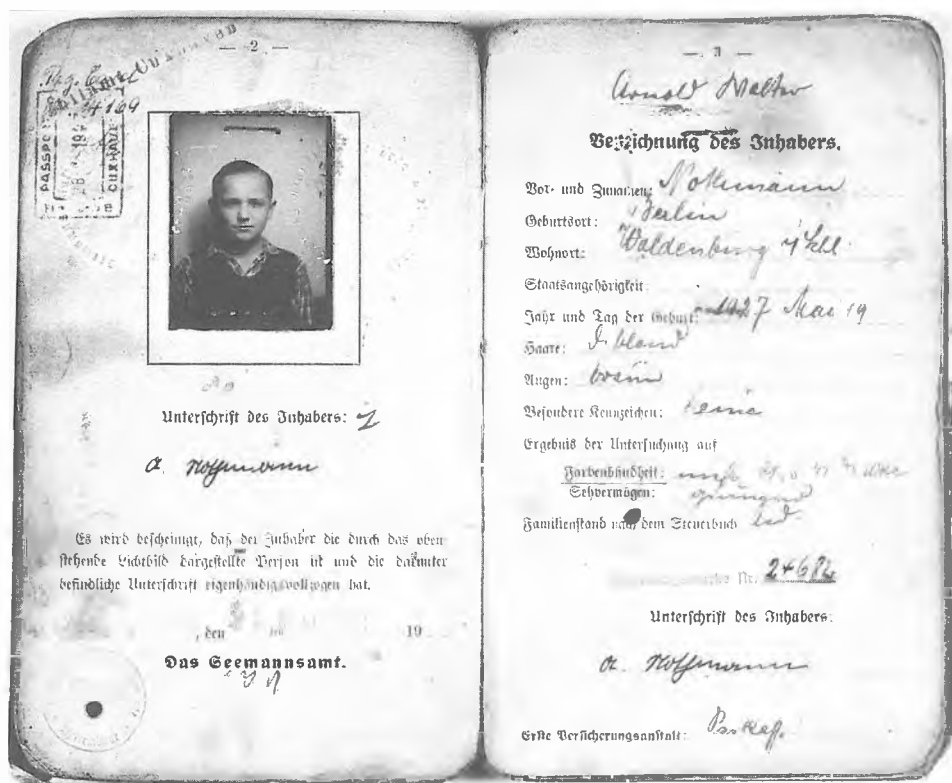 — 2 —
4169
PASSPO
CUXHAVE
Unterschrift des Inhabers:
A. Hoffmann
Es wird bescheinigt, daß der Inhaber die durch das oben
stehende Lichtbild dargestellte Person ist und die darunter
befindliche Unterschrift eigenhändig vollzogen hat.
, den 19
Das Seemannsamt.
— 3 —
Arnold Walter
Bezeichnung des Inhabers.
Vor- und Zunamen:
Geburtsort: Berlin
Wohnort: Waldenburg
Staatsangehörigkeit:
Jahr und Tag der Geburt: 1927 Mai 19
Haare: d. blond
Augen: braun
Besondere Kennzeichen: keine
Ergebnis der Untersuchung auf
Farbenblindheit:
Sehvermögen: genügend
Familienstand nach dem Steuerbuch led.
Nr. 24682
Unterschrift des Inhabers:
A. Hoffmann
Erste Versicherungsanstalt: